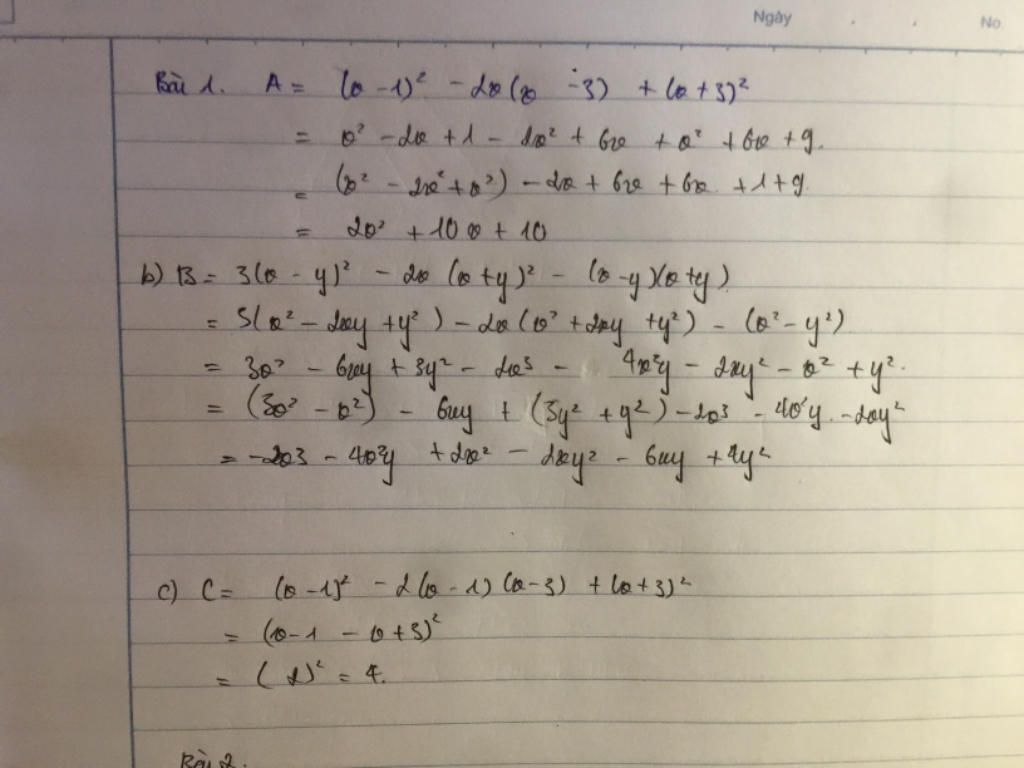 Ngày No.
Bài 1. A = (x - 1)² - 2x(x - 3) + (x + 3)²
= x² - 2x + 1 - 2x² + 6x + x² + 6x + 9.
= (x² - 2x² + x²) - 2x + 6x + 6x + 1 + 9.
= 2x² + 10x + 10
b) B = 3(x - y)² - 2x (x + y)² - (x - y)(x + y)
= 3(x² - 2xy + y²) - 2x(x² + 2xy + y²) - (x² - y²)
= 3x² - 6xy + 3y² - 2x³ - 4x²y - 2xy² - x² + y².
= (3x² - x²) - 6xy + (3y² + y²) - 2x³ - 4x²y - 2xy²
= -2x³ - 4x²y + 2x² - 2xy² - 6xy + 4y²
c) C = (x - 1)² - 2(x - 1)(x - 3) + (x + 3)²
= (x - 1 - x + 3)²
= (2)² = 4.
Bài 2.